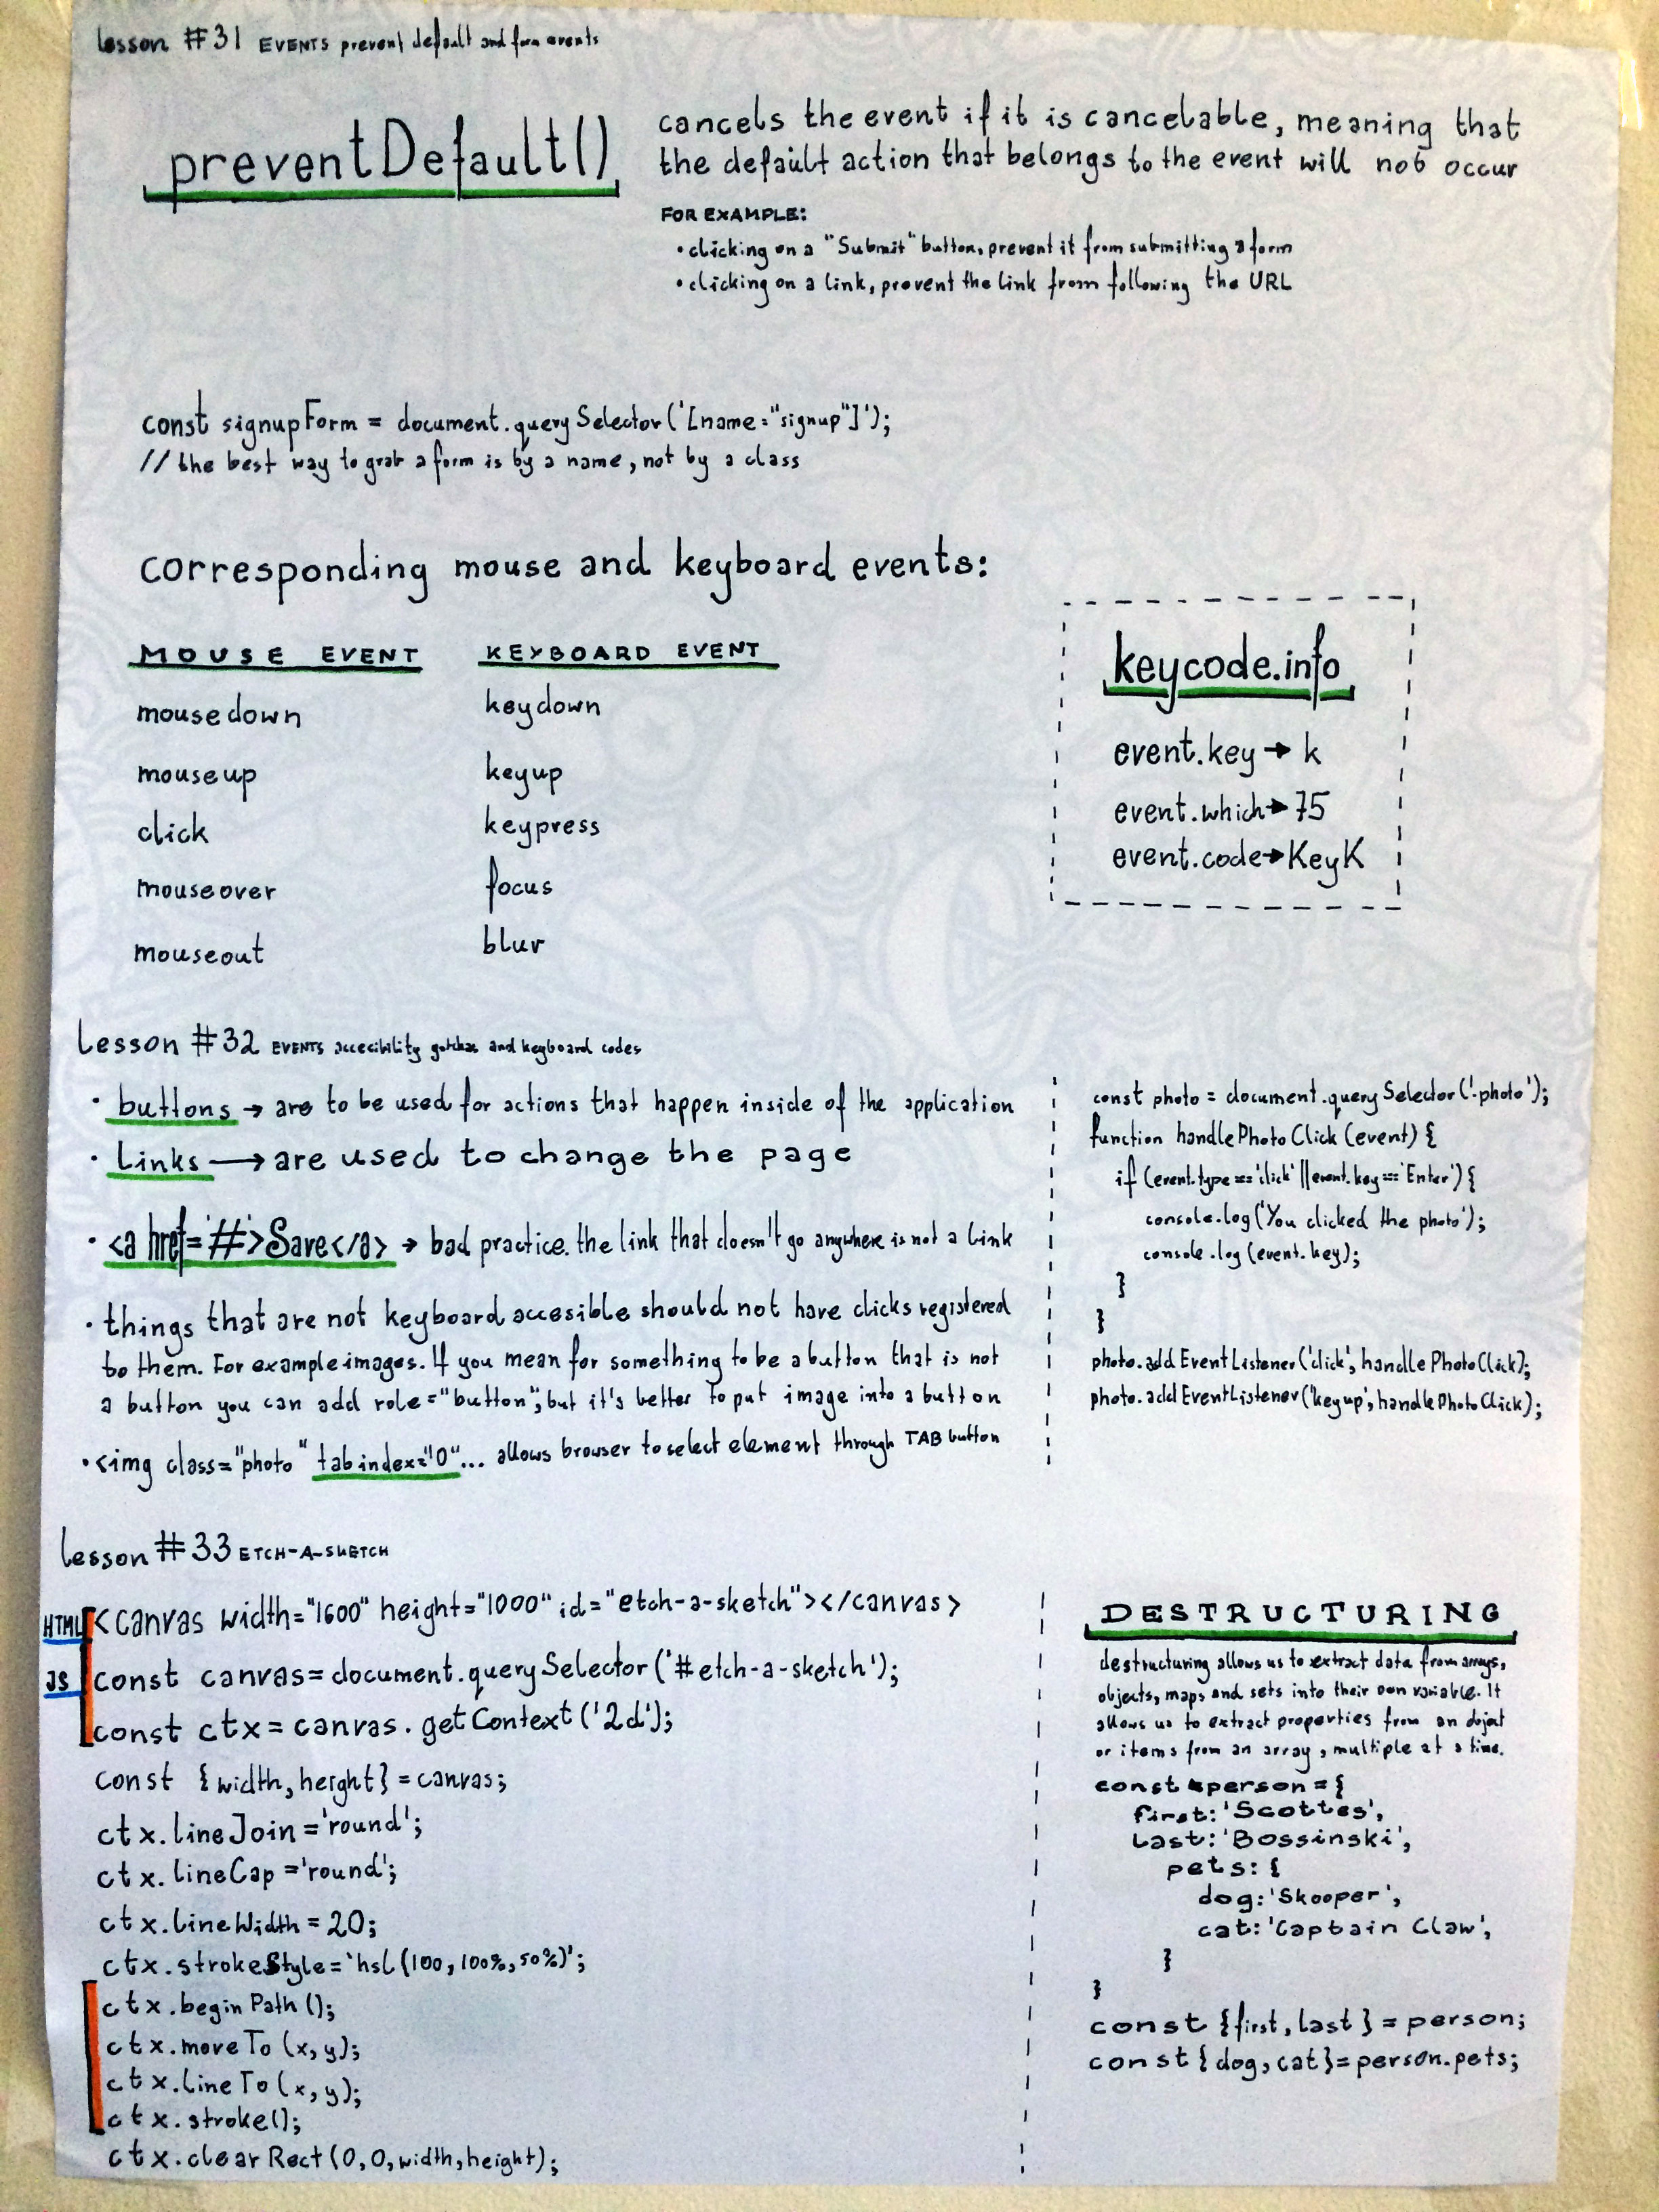 lesson #31 EVENTS prevent default and form events
preventDefault()
cancels the event if it is cancelable, meaning that
the default action that belongs to the event will not occur
FOR EXAMPLE:
• clicking on a "Submit" button, prevent it from submitting a form
• clicking on a link, prevent the link from following the URL
const signupForm = document.querySelector('[name="signup"]');
// the best way to grab a form is by a name, not by a class
corresponding mouse and keyboard events:
MOUSE EVENT KEYBOARD EVENT
mousedown keydown
mouseup keyup
click keypress
mouseover focus
mouseout blur
keycode.info
event.key → k
event.which → 75
event.code → KeyK
Lesson #32 EVENTS accecibility gotchas and keyboard codes
• buttons → are to be used for actions that happen inside of the application
• Links → are used to change the page
• <a href='#'>Save</a> → bad practice. the link that doesn't go anywhere is not a link
• things that are not keyboard accesible should not have clicks registered
to them. For example images. If you mean for something to be a button that is not
a button you can add role="button", but it's better to put image into a button
• <img class="photo" tabindex="0"... allows browser to select element through TAB button
const photo = document.querySelector('.photo');
function handlePhotoClick(event) {
if (event.type === 'click' || event.key === 'Enter') {
console.log('You clicked the photo');
console.log(event.key);
}
}
photo.addEventListener('click', handlePhotoClick);
photo.addEventListener('keyup', handlePhotoClick);
Lesson #33 ETCH-A-SKETCH
HTML <canvas width="1600" height="1000" id="etch-a-sketch"></canvas>
JS const canvas = document.querySelector('#etch-a-sketch');
const ctx = canvas.getContext('2d');
const {width, height} = canvas;
ctx.lineJoin = 'round';
ctx.lineCap = 'round';
ctx.lineWidth = 20;
ctx.strokeStyle = 'hsl(100, 100%, 50%)';
ctx.beginPath();
ctx.moveTo(x, y);
ctx.lineTo(x, y);
ctx.stroke();
ctx.clearRect(0, 0, width, height);
DESTRUCTURING
destructuring allows us to extract data from arrays,
objects, maps and sets into their own variable. It
allows us to extract properties from an object
or items from an array, multiple at a time.
const person = {
first: 'Scottes',
last: 'Bossinski',
pets: {
dog: 'Skooper',
cat: 'Captain Claw',
}
}
const {first, last} = person;
const {dog, cat} = person.pets;